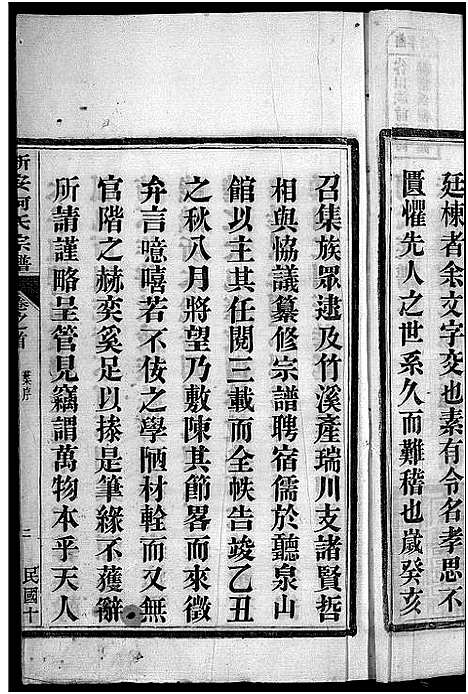 廷棟者余文字交也素有令名孝思不
匱懼先人之世系久而難稽也歲癸亥
召集族眾逮及竹溪產瑞川支諸賢哲
相與協議纂修宗譜聘宿儒於聽泉山
館以主其任閱三載而全帙告竣乙丑
之秋八月將望乃敷陳其節畧而來徵
弁言噫嘻若不佞之學陋材輇而又無
官階之赫奕奚足以搽是筆緣不獲辭
所請謹略呈管見竊謂萬物本乎天人
新安柯氏宗譜
卷之首
葉序
二
民國十